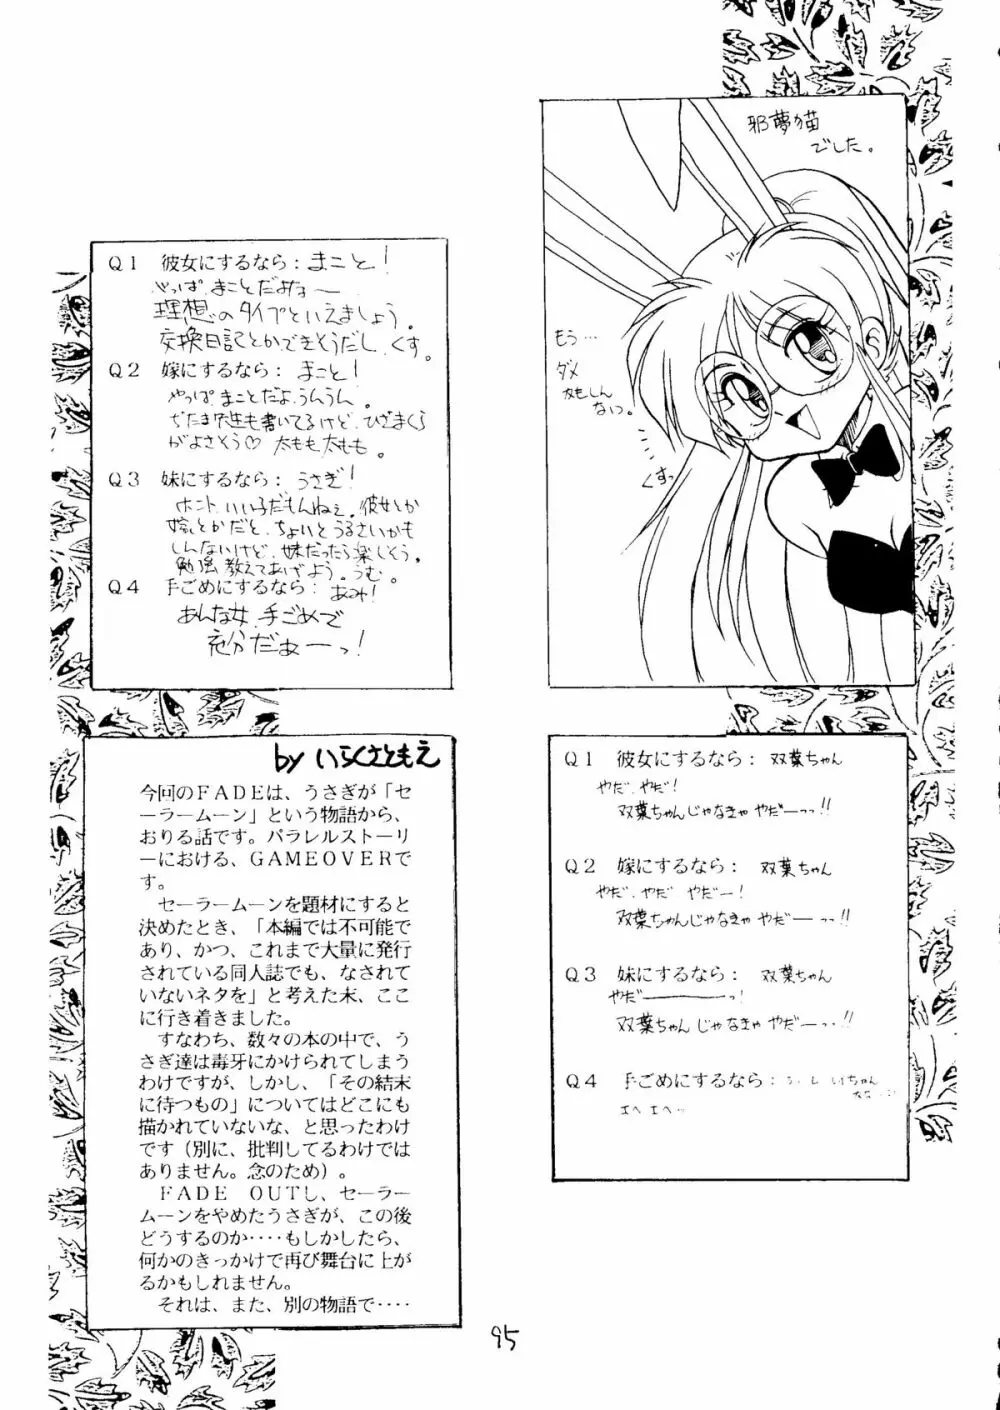 邪夢猫
でした。
もう…
ダメ
かもしんない。
くすっ
Q1 彼女にするなら：まこと！
やっぱ まことだよねー
理想のタイプといえましょう。
交換日記とかできそうだし、くす。
Q2 嫁にするなら：まこと！
やっぱ まことだよ、うんうん。
も書いてるけど、ひざまくら
がよさそう♡ 太もも太もも。
Q3 妹にするなら：うさぎ！
ホント いい子だもんねぇ。彼女とか
嫁とかだと、ちょいとうるさいかも
しんないけど、妹だったら楽しそう。
勉強教えてあげよう。うむ。
Q4 手ごめにするなら：あみ！
あんな女、手ごめで
充分だぁーっ！
by いらくさともえ
今回のＦＡＤＥは、うさぎが「セ
ーラームーン」という物語から、
おりる話です。パラレルストーリ
ーにおける、ＧＡＭＥＯＶＥＲで
す。
セーラームーンを題材にすると
決めたとき、「本編では不可能で
あり、かつ、これまで大量に発行
されている同人誌でも、なされて
いないネタを」と考えた末、ここ
に行き着きました。
すなわち、数々の本の中で、う
さぎ達は毒牙にかけられてしまう
わけですが、しかし、「その結末
に待つもの」についてはどこにも
描かれていないな、と思ったわけ
です（別に、批判してるわけでは
ありません。念のため）。
ＦＡＤＥ　ＯＵＴし、セーラー
ムーンをやめたうさぎが、この後
どうするのか‥‥もしかしたら、
何かのきっかけで再び舞台に上が
るかもしれません。
それは、また、別の物語で‥‥
Q1 彼女にするなら：双葉ちゃん
やだ、やだ！
双葉ちゃんじゃなきゃ やだーっっ!!
Q2 嫁にするなら：双葉ちゃん
やだ、やだ やだー！
双葉ちゃんじゃなきゃ やだーっっ!!
Q3 妹にするなら：双葉ちゃん
やだーーっ！
双葉ちゃんじゃなきゃ やだーっっ!!
Q4 手ごめにするなら：
エヘエヘ…
95